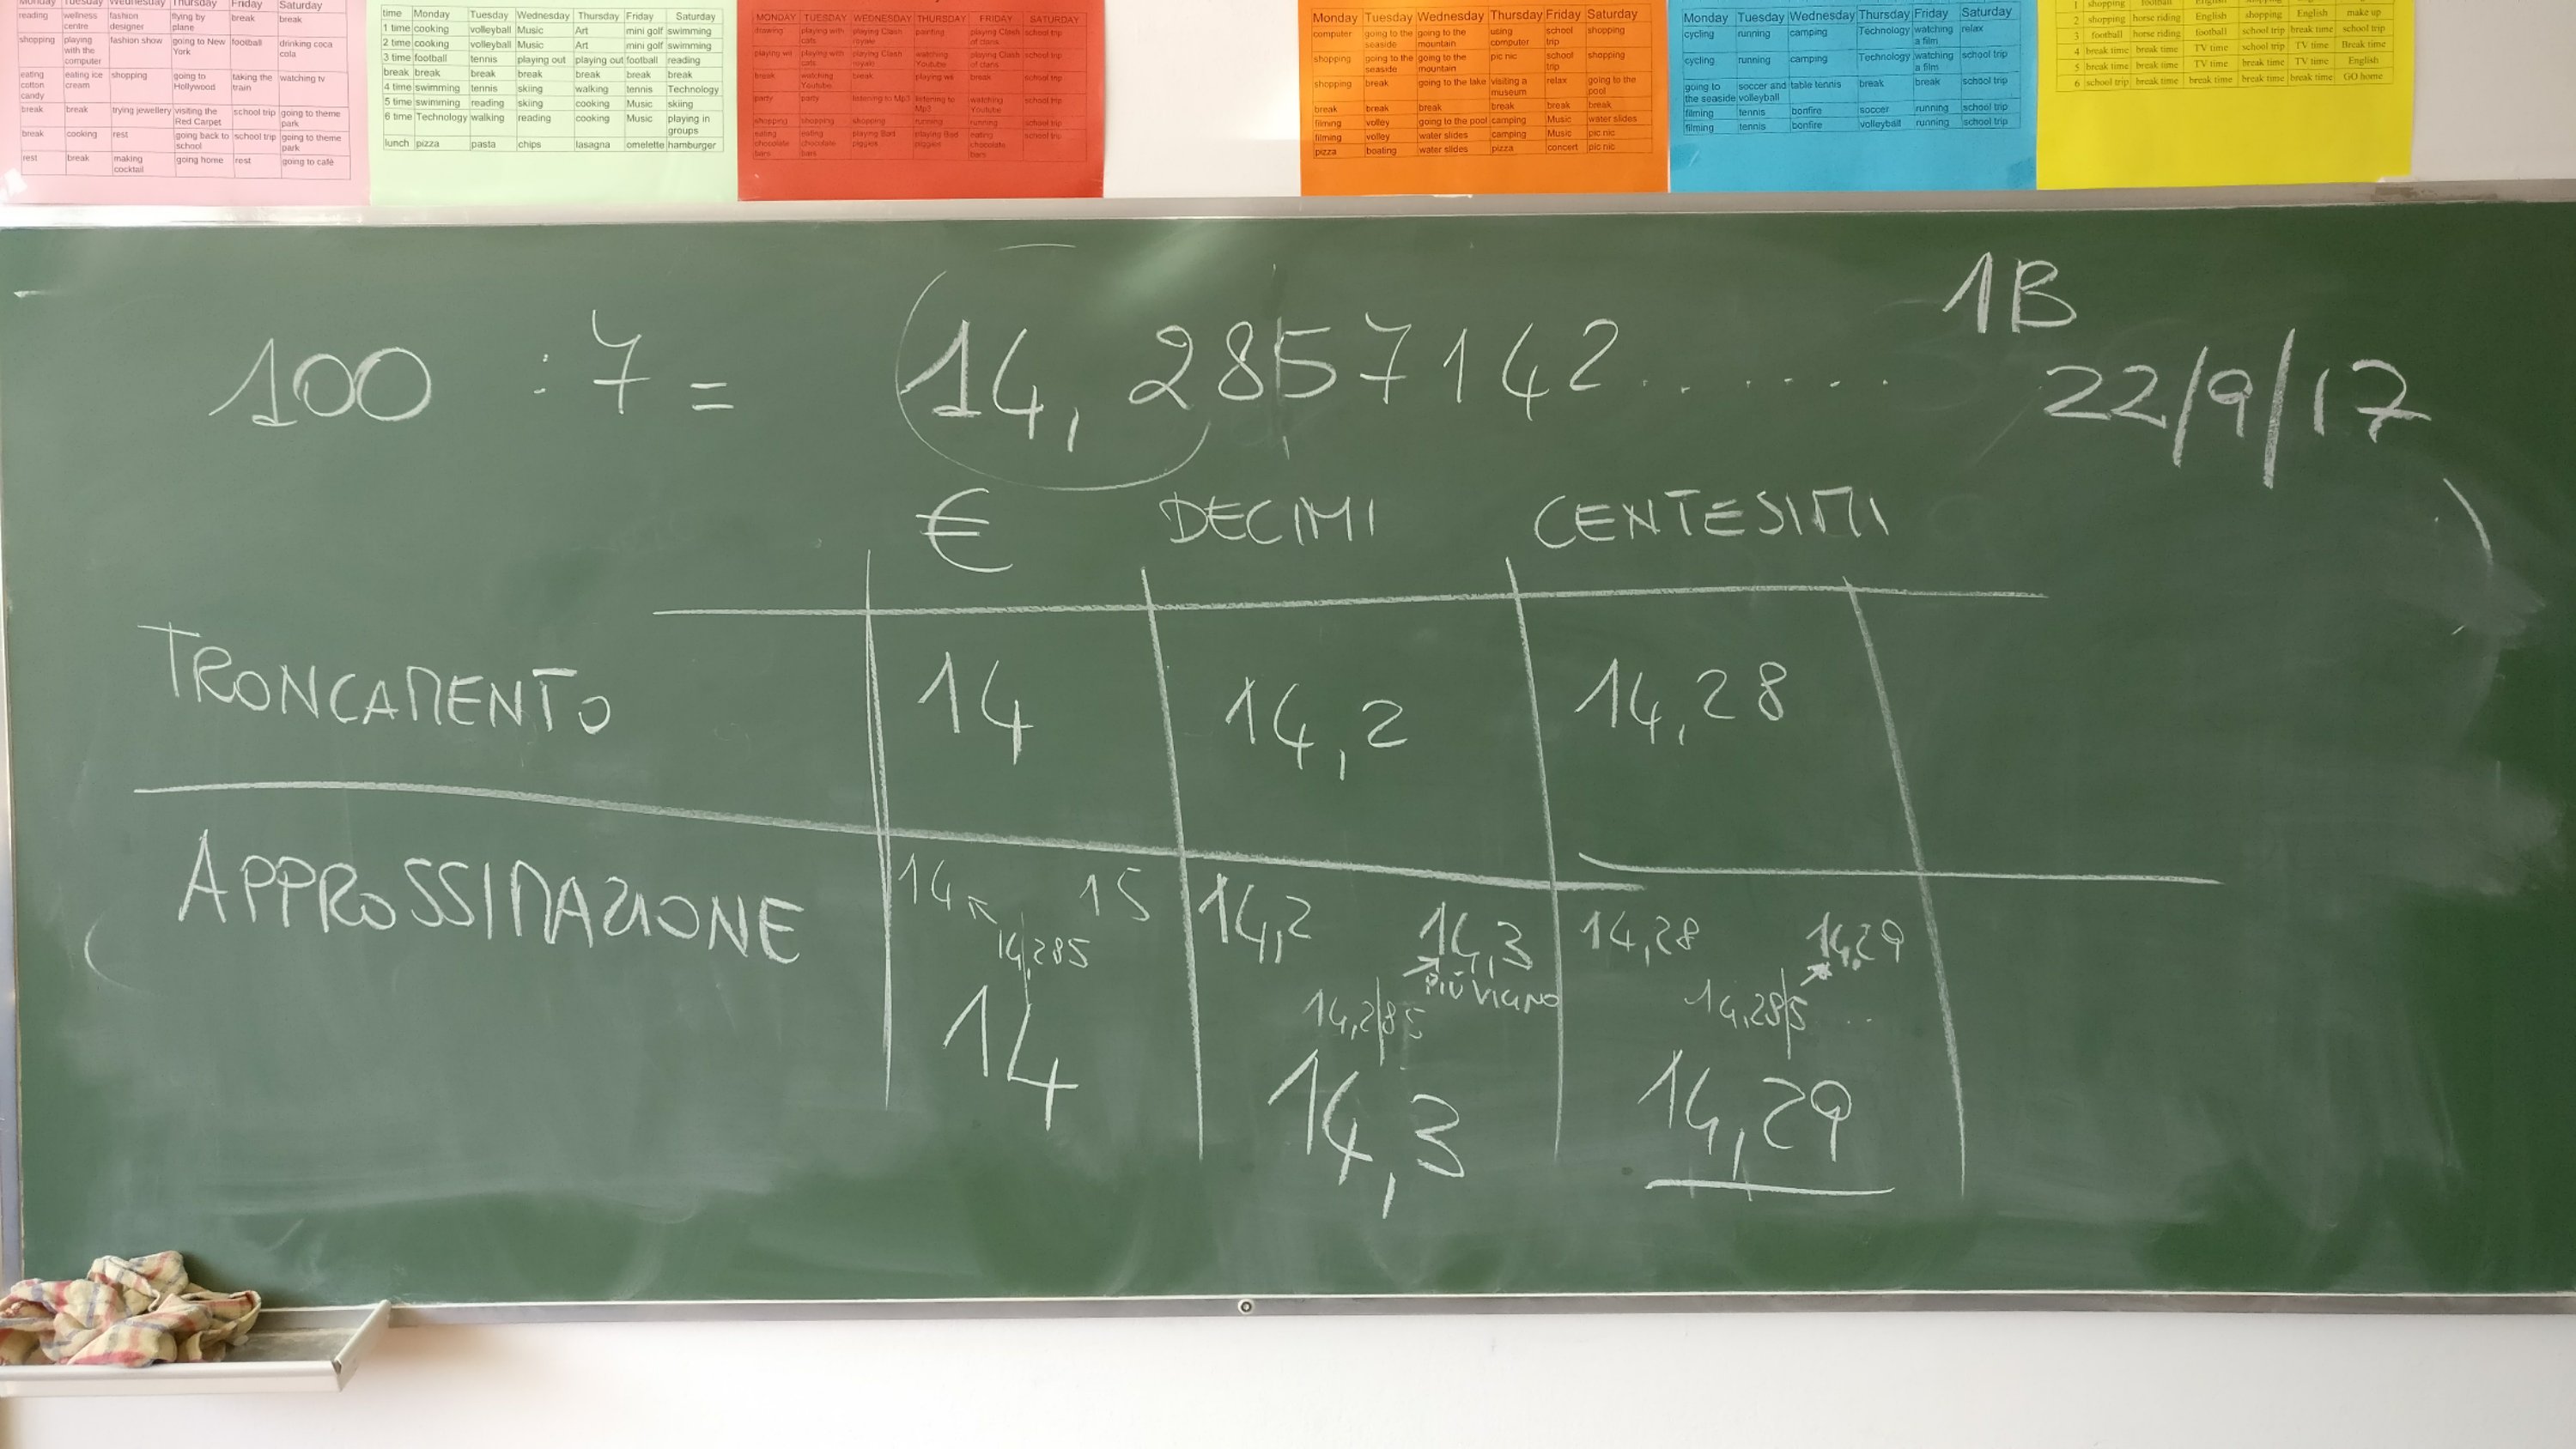 Monday Tuesday Wednesday Thursday Friday Saturday
reading wellness centre fashion designer flying by plane break break
shopping playing with the computer fashion show going to New York football drinking coca cola
eating cotton candy eating ice cream shopping going to Hollywood taking the train watching tv
break break trying jewellery visiting the Red Carpet school trip going to theme park
break cooking rest going back to school school trip going to theme park
rest break making cocktail going home rest going to cafè
time Monday Tuesday Wednesday Thursday Friday Saturday
1 time cooking volleyball Music Art mini golf swimming
2 time cooking volleyball Music Art mini golf swimming
3 time football tennis playing out playing out football reading
break break break break break break break
4 time swimming tennis skiing walking tennis Technology
5 time swimming reading skiing cooking Music skiing
6 time Technology walking reading cooking Music playing in groups
lunch pizza pasta chips lasagna omelette hamburger
MONDAY TUESDAY WEDNESDAY THURSDAY FRIDAY SATURDAY
drawing playing with cats playing Clash royale painting playing Clash of clans school trip
playing wii playing with cats playing Clash royale watching Youtube playing Clash of clans school trip
break watching Youtube break playing wii break school trip
party party listening to Mp3 listening to Mp3 watching Youtube school trip
shopping shopping shopping running running school trip
eating chocolate bars eating chocolate bars playing Bad piggies playing Bad piggies eating chocolate bars school trip
Monday Tuesday Wednesday Thursday Friday Saturday
computer going to the seaside going to the mountain using computer school trip shopping
shopping going to the seaside going to the mountain pic nic school trip shopping
shopping break going to the lake visiting a museum relax going to the pool
break break break break break break
filming volley going to the pool camping Music water slides
filming volley water slides camping Music pic nic
pizza boating water slides pizza concert pic nic
Monday Tuesday Wednesday Thursday Friday Saturday
cycling running camping Technology watching a film relax
cycling running camping Technology watching a film school trip
going to the seaside soccer and volleyball table tennis break break school trip
filming tennis bonfire soccer running school trip
filming tennis bonfire volleyball running school trip
1 shopping football English
2 shopping horse riding English shopping English make up
3 football horse riding football school trip break time school trip
4 break time break time TV time school trip TV time Break time
5 break time break time TV time break time TV time English
6 school trip break time break time break time break time GO home
1B
22/9/17
100 : 7 = 14,2857142.......
€ DECIMI CENTESIMI
TRONCAMENTO 14 14,2 14,28
APPROSSIMAZIONE 14 15 14,2 14,3 14,28 14,29
14,285 PIÙ VICINO
14,285 14,285 ..
14 14,3 14,29